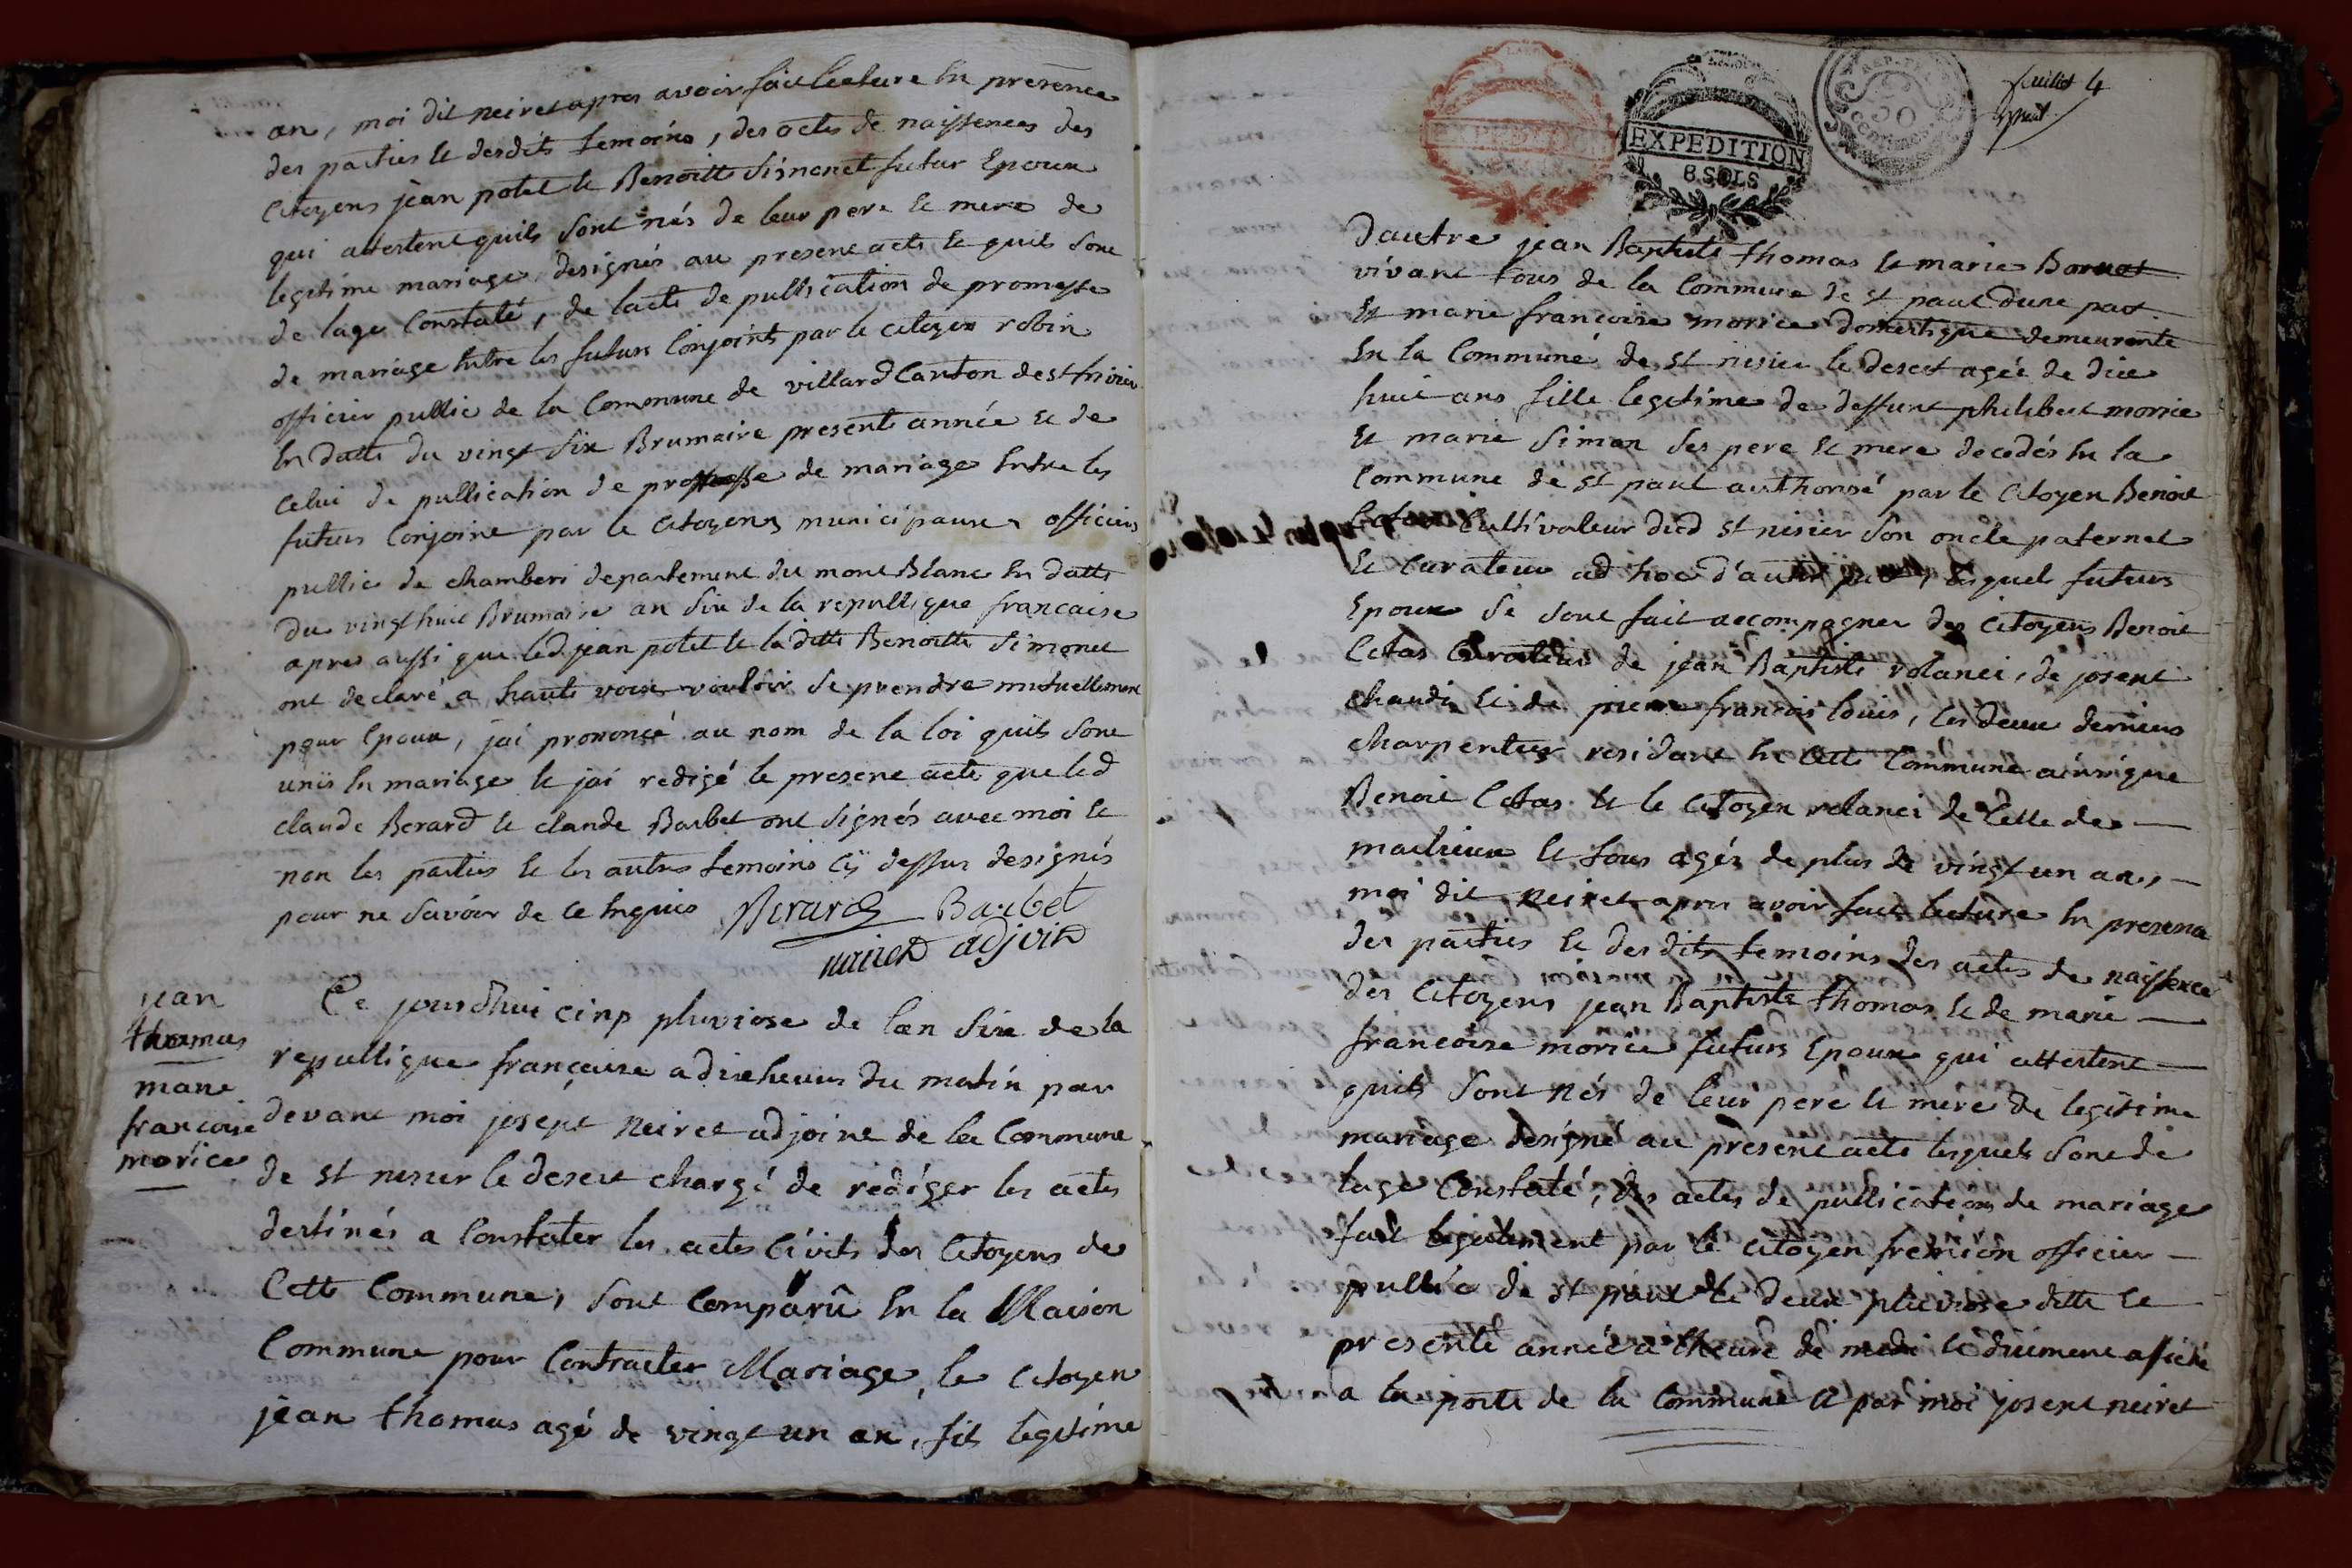 an, moi dit neiret apres avoir fait lecture En presence
des parties et desdits temoins, des actes de naissences des
Citoyens jean potet et Benoitte Simonet futur Epoux
qui attestent quils sont nés de leur pere et mere de
legitime mariage designés au present acte et quils sont
de lage Constaté, de lacte de publication de promesse
de mariage Entre les futurs Conjoints par le citoyen robin
officier public de la Commune de villard Canton de st trivier
En datte du vingt Six Brumaire presente année et de
Celui de publication de promesse de mariage Entre les
futurs Conjoint par le citoyens municipaux officiers
public de chamberi departement du mont Blanc En datte
du vingt huit Brumaire an Six de la republique francaise
apres aussi que led jean potet et la ditte Benoitte Simonet
ont declaré a haute voix vouloir se prendre mutuellement
pour Epoux, jai prononcé au nom de la loi quils sont
unis En mariage et jai redigé le present acte que led
claude Berard et claude Barbet ont signés avec moi et
non les parties et les autres temoins cy dessus designés
pour ne savoir de ce Enquis Berard Barbet
neiret adjoint
jean
thomas
marie
francoise
morice
Ce jourdhui cinq pluviose de lan Six de la
republique française a dix heures du matin par
devant moi joseph Neiret adjoint de la Commune
de st nisier le desert chargé de rediger les actes
destinés a Constater les actes Civils des Citoyens de
Cette Commune, sont comparû En la Maison
Commune pour Contracter Mariage, le Citoyen
jean thomas agé de vingt un an, fils legitime
feuillet 4
EXPEDITION
EXPEDITION
8 SOLS
REP. FRA
50
centimes
dautre jean Baptiste thomas et marie
vivant tous de la Commune de st paul dune part
Et marie francoise morice domestique demeurante
En la Commune de st nisier le desert agée de dix
huit ans fille legitime de deffunt philibert morice
Et marie Simon ses pere et mere decedés En la
Commune de st paul authorisé par le Citoyen Benoit
Cultivateur dud st nisier son oncle paternel
Et Curateur ad hoc d'autre part, lesquels futurs
Epoux se sont fait accompagner des Citoyens Benoit
Curateur de jean Baptiste volanci, de josept
chaudi et de pierre francois louis, les deux derniers
charpentier residant En Cette Commune ainsi que
Benoit et le Citoyen volanci de Celle de
marlieux et tous agés de plus de vingt un ans,
moi dit Neiret apres avoir fait lecture En presence
des parties et desdits temoins des actes de naissence
des Citoyens jean Baptiste thomas et de marie
francoise morice futurs Epoux qui attestent
quils sont nés de leur pere et mere de legitime
mariage designé au present acte lesquels sont de
lage Constaté, des actes de publication de mariage
fait legalement par le citoyen fremion officier
public de st paul le deux pluviose ditte et
presente année a lheure de midi et duement afiché
a la porte de la Commune et par moi josept neiret